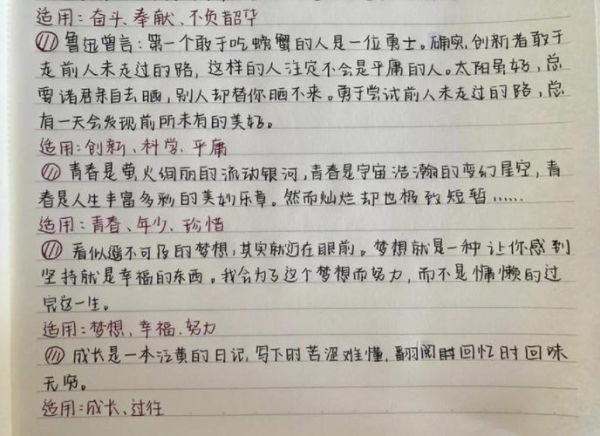 适用:奋斗、奉献、不负韶华
鲁迅曾言:第一个敢于吃螃蟹的人是一位勇士。确实,创新者敢于
走前人未走过的路,这样的人注定不会是平庸的人。太阳虽好,总
要诸君亲自去晒,别人却替你晒不来。勇于尝试前人未走过的路,总
有一天会发现前所未有的美好。
适用:创新、科学、平庸
青春是萤火绚丽的流动银河,青春是宇宙浩瀚的变幻星空,青
春是人生丰富多彩的美妙乐章。然而灿烂却也极致短暂……
适用:青春、年少、珍惜
看似遥不可及的梦想,其实就近在眼前。梦想就是一种让你感到
坚持就是幸福的东西。我会为了这个梦想而努力,而不是慵懒的过
完这一生。
适用:梦想、幸福、努力
成长是一本泛黄的日记,写下时苦涩难懂,翻阅时回忆时回味
无穷。
适用:成长、过往